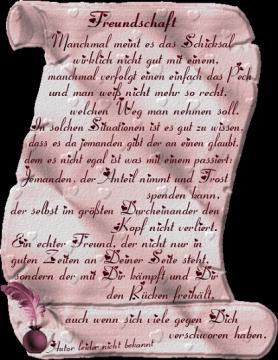 Freundschaft
Manchmal meint es das Schicksal
wirklich nicht gut mit einem,
manchmal verfolgt einen einfach das Pech
und man weiß nicht mehr so recht,
welchen Weg man nehmen soll.
In solchen Situationen ist es gut zu wissen,
dass es da jemanden gibt der an einen glaubt,
dem es nicht egal ist was mit einem passiert:
Jemanden, der Anteil nimmt und Trost
spenden kann,
der selbst im größten Durcheinander den
Kopf nicht verliert.
Ein echter Freund, der nicht nur in
guten Zeiten an Deiner Seite steht,
sondern der mit Dir kämpft und Dir
den Rücken freihält,
auch wenn sich viele gegen Dich
verschworen haben.
Autor leider nicht bekannt